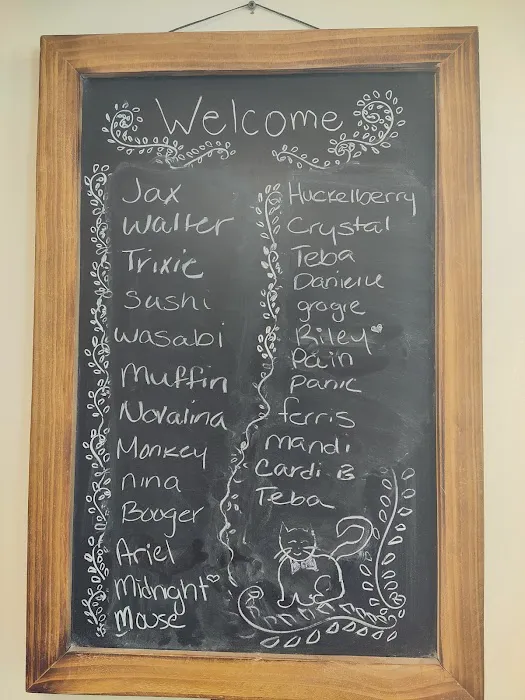 Welcome
Jax
Walter
Trixie
Sushi
Wasabi
Muffin
Novalina
Monkey
nina
Booger
Ariel
Midnight
Mouse
Huckelberry
Crystal
Teba
Danielle
grogie
Riley
Pain
Panic
ferris
mandi
Cardi B
Teba